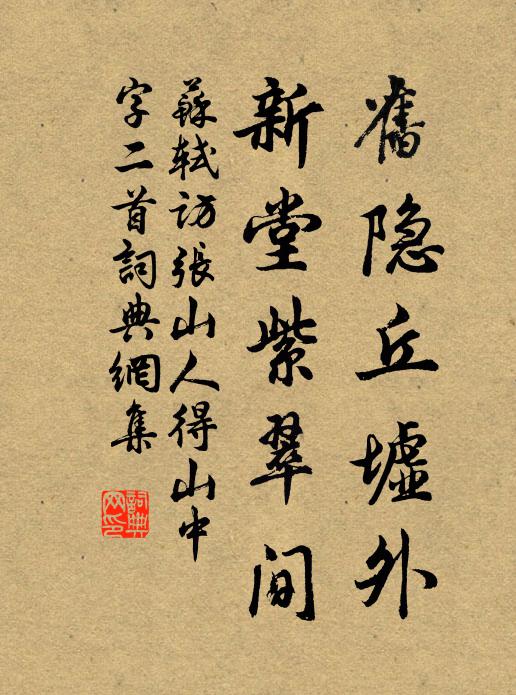 舊隐丘墟外
新堂紫翠间
蘇軾访張山人得山中
字二首詞典網集
詞典網印